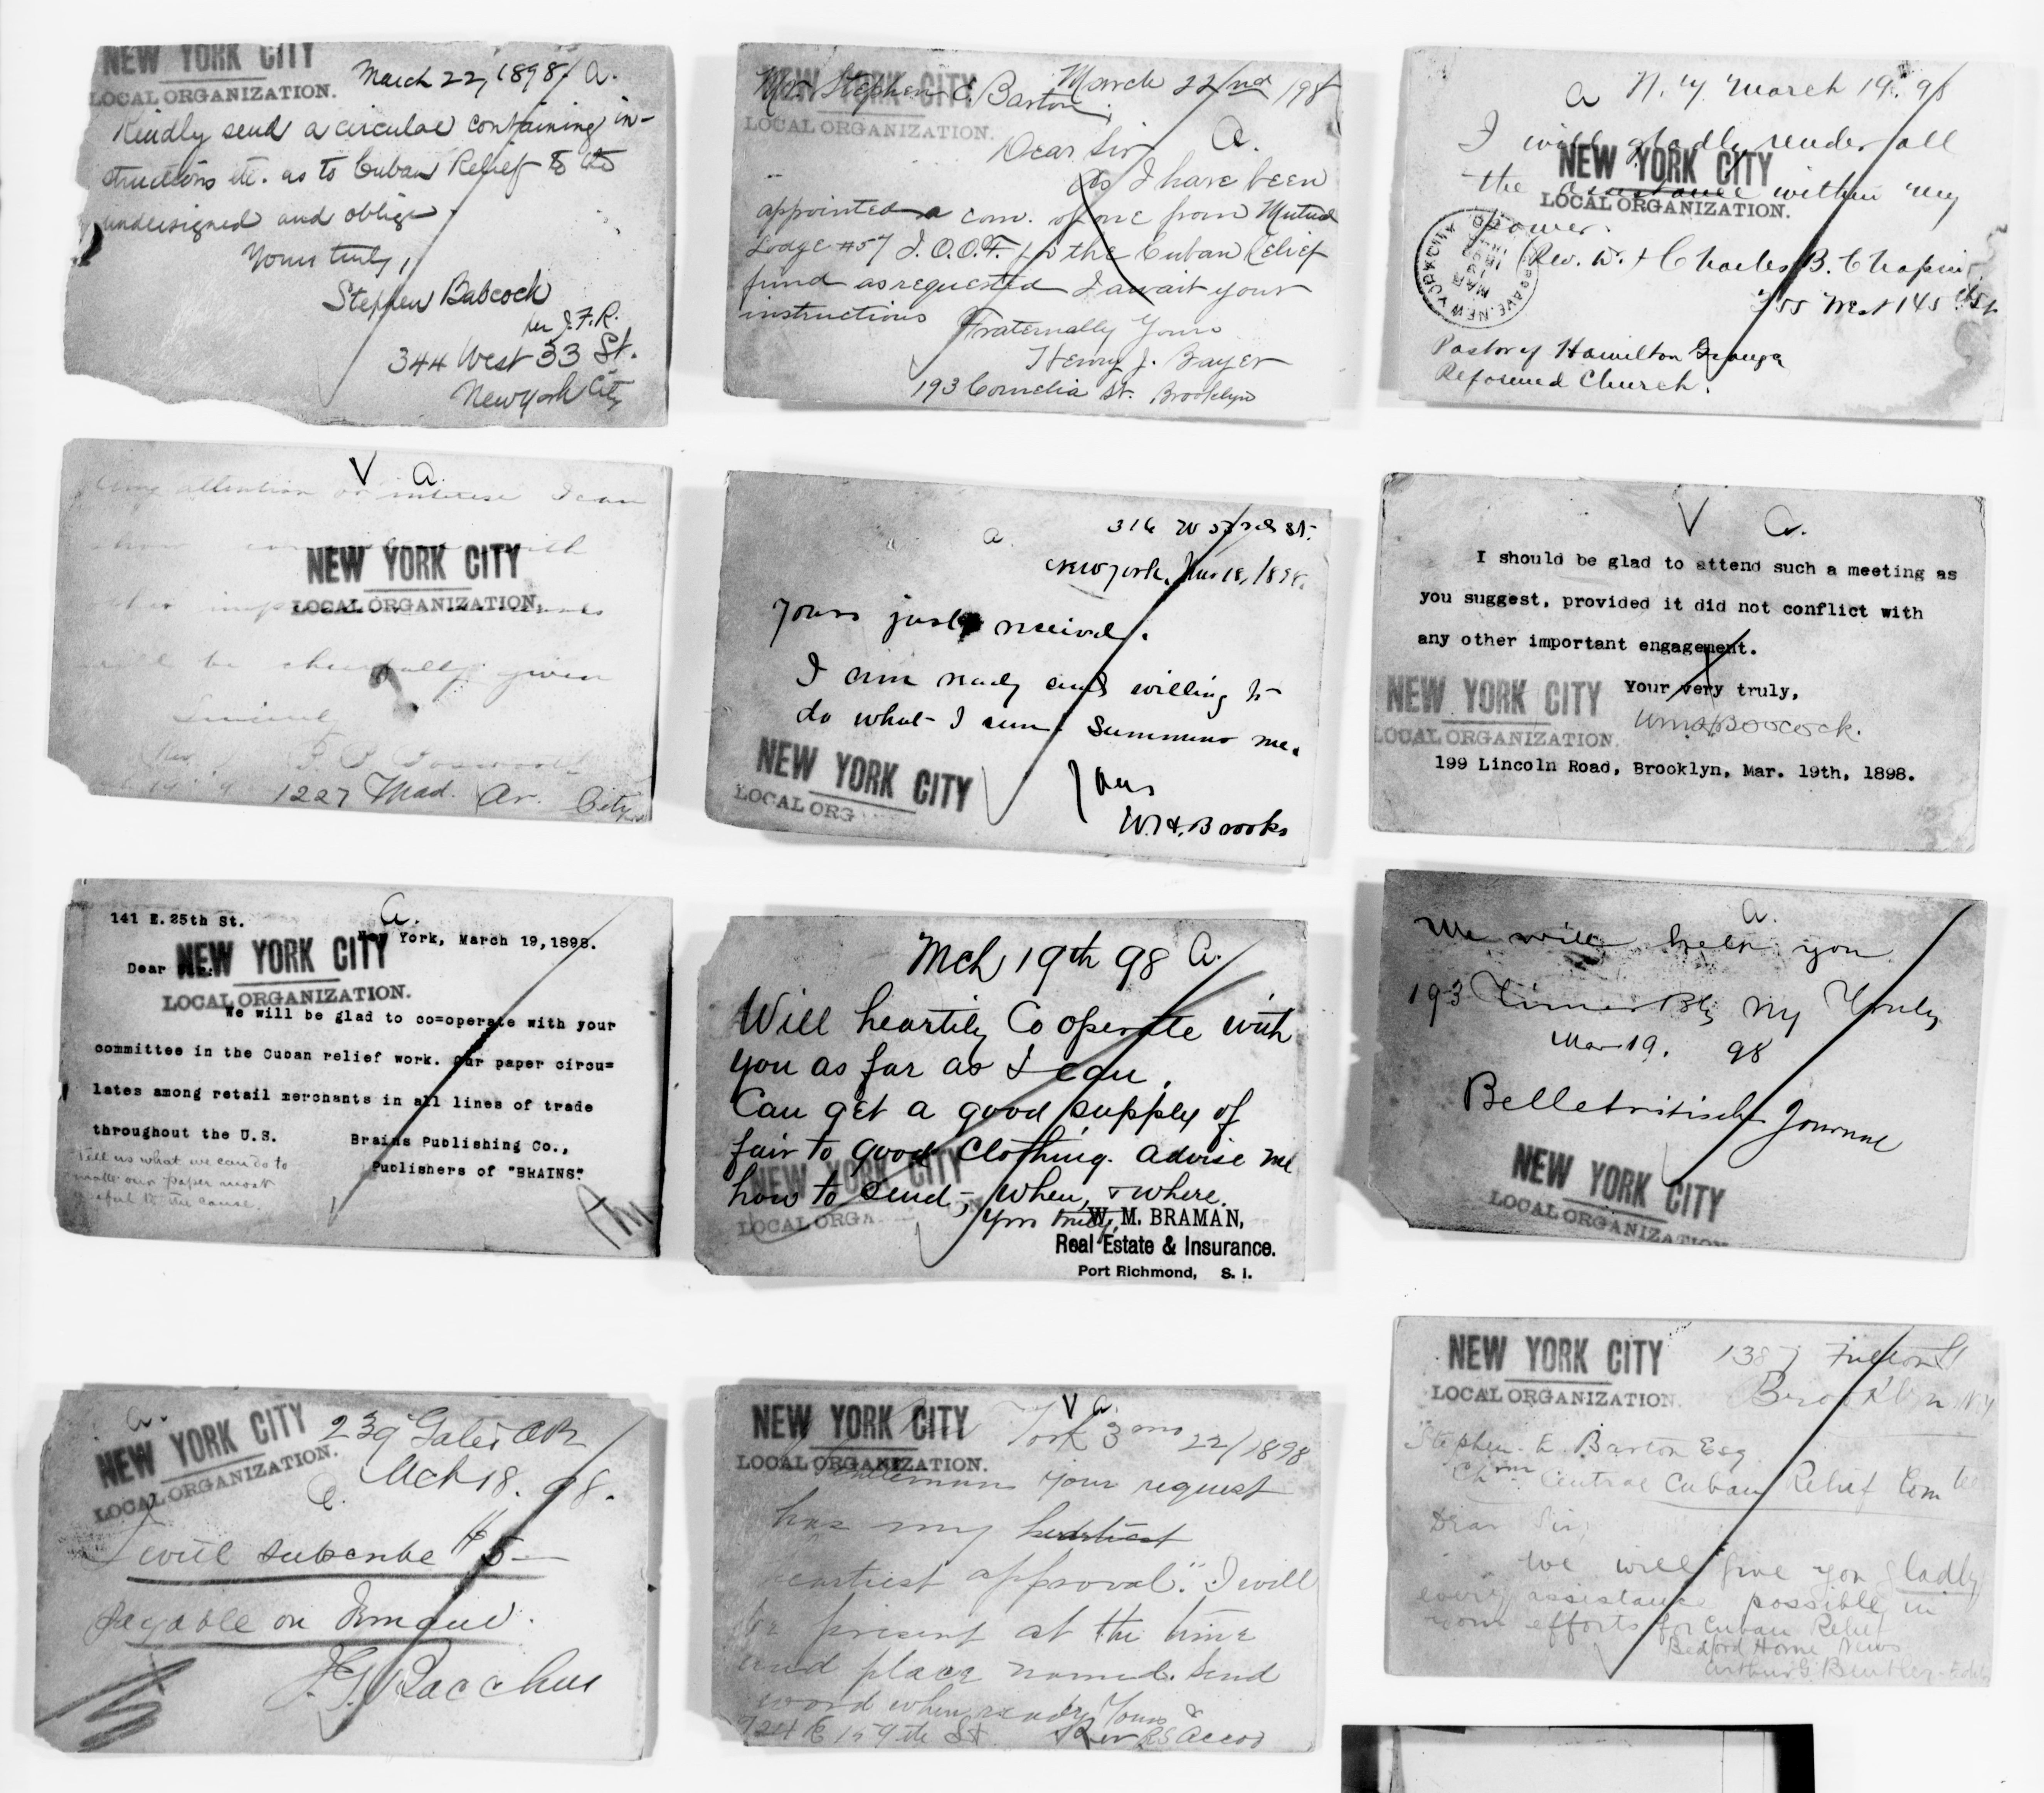 NEW YORK CITY
LOCAL ORGANIZATION.
March 22, 1898 a.
Kindly send a circular containing in-
structions etc. as to Cuban Relief to the
undersigned and oblige
Yours truly,
Stephen Babcock
per J.F.R.
344 West 33 St.
New York City
NEW YORK CITY
LOCAL ORGANIZATION.
Mr. Stephen E. Barton March 22nd 198
Dear Sir a.
As I have been
appointed a com. of one from Mutual
Lodge #57 I.O.O.F. for the Cuban Relief
fund as requested I await your
instructions
Fraternally Yours
Henry J.
193 Cornelia St. Brooklyn
a N.Y. March 19. 98
I will gladly render all
the assistance within my
power.
NEW YORK CITY
LOCAL ORGANIZATION.
Rev. Charles B. Chapin
West 145 St
Pastor of Hamilton Grange
Reformed Church.
V a.
any attention or interest I can
show
NEW YORK CITY
LOCAL ORGANIZATION.
will be cheerfully given
1227 Mad. Av. City
a. 316 W St.
New York, 18, 1898.
Yours just received.
I am ready and willing to
do what I can. Summons me.
NEW YORK CITY
LOCAL ORG
Yours
W.H. Brooks
V a.
I should be glad to attend such a meeting as
you suggest, provided it did not conflict with
any other important engagement.
NEW YORK CITY
LOCAL ORGANIZATION.
Your very truly,
Boocock.
199 Lincoln Road, Brooklyn, Mar. 19th, 1898.
141 E. 25th St. a.
New York, March 19, 1898.
Dear
NEW YORK CITY
LOCAL ORGANIZATION.
We will be glad to co=operate with your
committee in the Cuban relief work. Our paper circu=
lates among retail merchants in all lines of trade
throughout the U.S.
Brains Publishing Co.,
Publishers of "BRAINS".
Tell us what we can do to
make our paper most
useful to the cause.
Mch 19th 98 a.
Will heartily Cooperate with
you as far as I can.
Can get a good supply of
fair to good Clothing. advise me
how to send, when, & where.
NEW YORK CITY
LOCAL ORGA
Yrs truly,
W. M. BRAMAN,
Real Estate & Insurance.
Port Richmond, S. I.
a.
We will help you
193 Times Bldg NY Truly
Mar 19. 98
Belletristische Journal
NEW YORK CITY
LOCAL ORGANIZATION
a.
NEW YORK CITY
LOCAL ORGANIZATION.
239
Mch 18. 98.
I will subscribe $5—
payable on demand.
Bacchus
V a.
NEW YORK CITY
LOCAL ORGANIZATION.
York 3mo 22/1898
Gentlemen your request
has my
heartiest approval." I will
be present at the time
and place named. Send
word when ready Yours
St. Rev
NEW YORK CITY
LOCAL ORGANIZATION.
1387 Fulton St
Brooklyn NY
Stephen E. Barton Esq
Chrm Central Cuban Relief Com tee
Dear Sir,
We will give you gladly
every assistance possible in
your efforts for Cuban Relief
Bedford Home News
Arthur G. Bentley - Editor